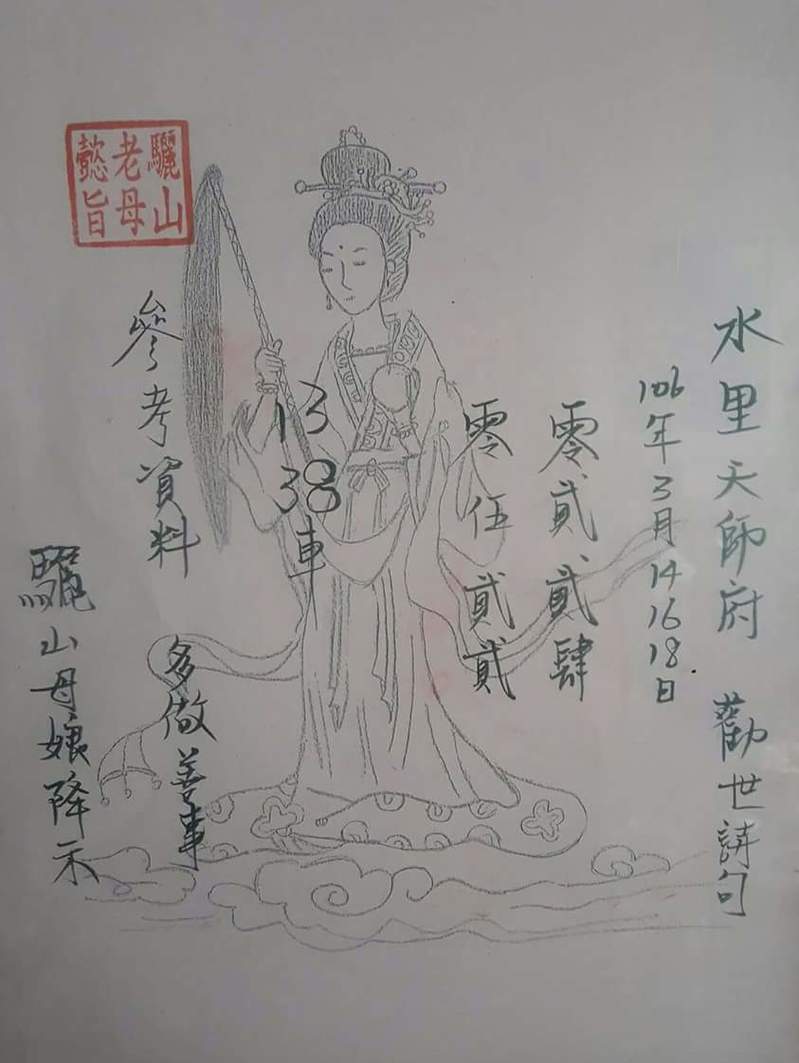 水里天師府 勸世詩句
106年3月14 16 18日
零貳貳肆
零伍貳貳
13
38車
參考資料 多做善事
驪山母娘降示
驪山
老母
懿旨